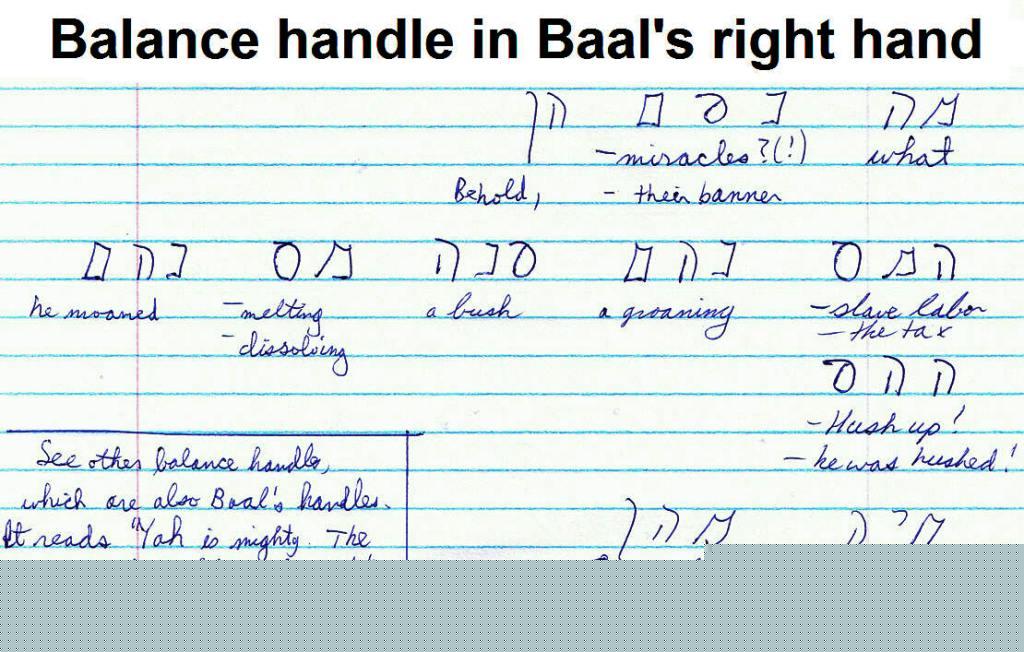 Balance handle in Baal's right hand
מה נסם הן
what
-miracles?(!)
- their banner
Behold,
המס נהם סנה מס נהם
he moaned -melting a bush a groaning -slave labor
-dissolving - the tax
ההס
-Hush up!
- he was hushed!
See other balance handle,
which are also Baal's handles.
It reads "Yah is mighty. The